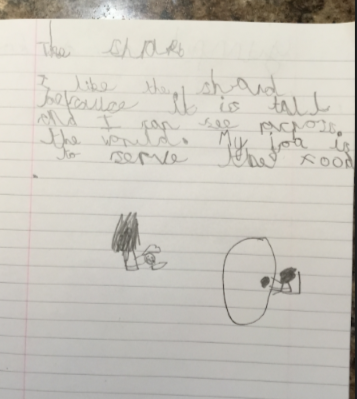 The shard
I like the shard
because it is tall
and I can see across
the world. My job is
to serve the food
.